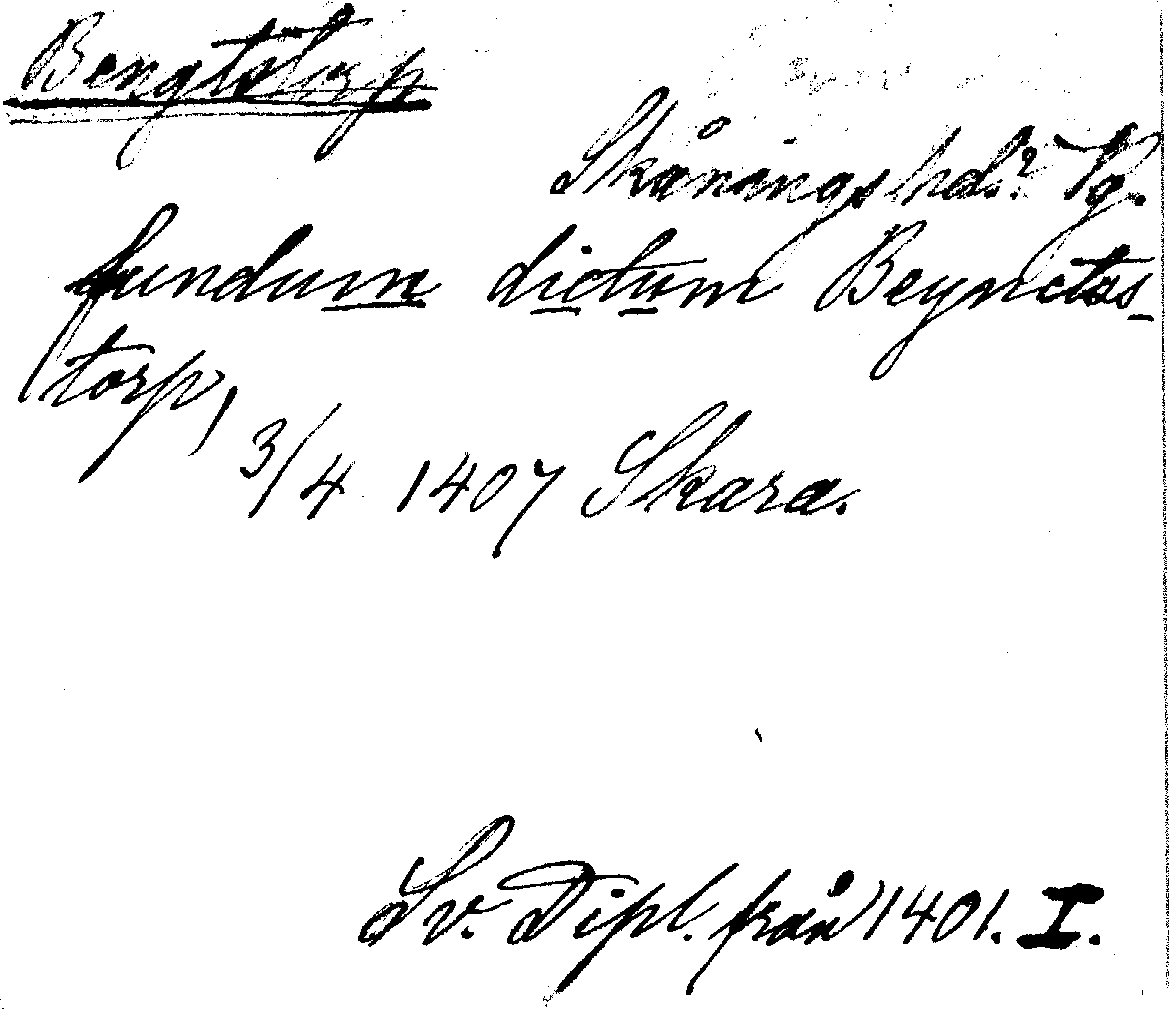 Bengtstorp
Skånings hd.? Vg.
fundum dictum Beynctos
torp,
3/4 1407 Skara.
Sv. Dipl. från 1401. I.